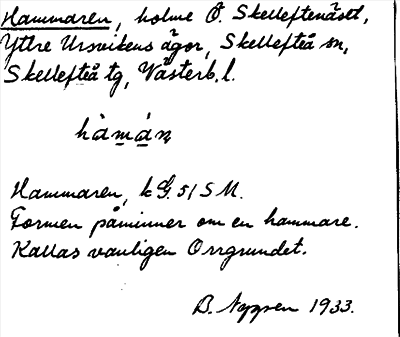 Hammaren, holme Ö. Skelleftenäset,
Yttre Ursvikens ägor, Skellefteå sn,
Skellefteå tg, Västerb. l.
hàmán
Hammaren, k G. 51 S M.
Formen påminner om en hammare.
Kallas vanligen Orrgrundet.
B. 1933.